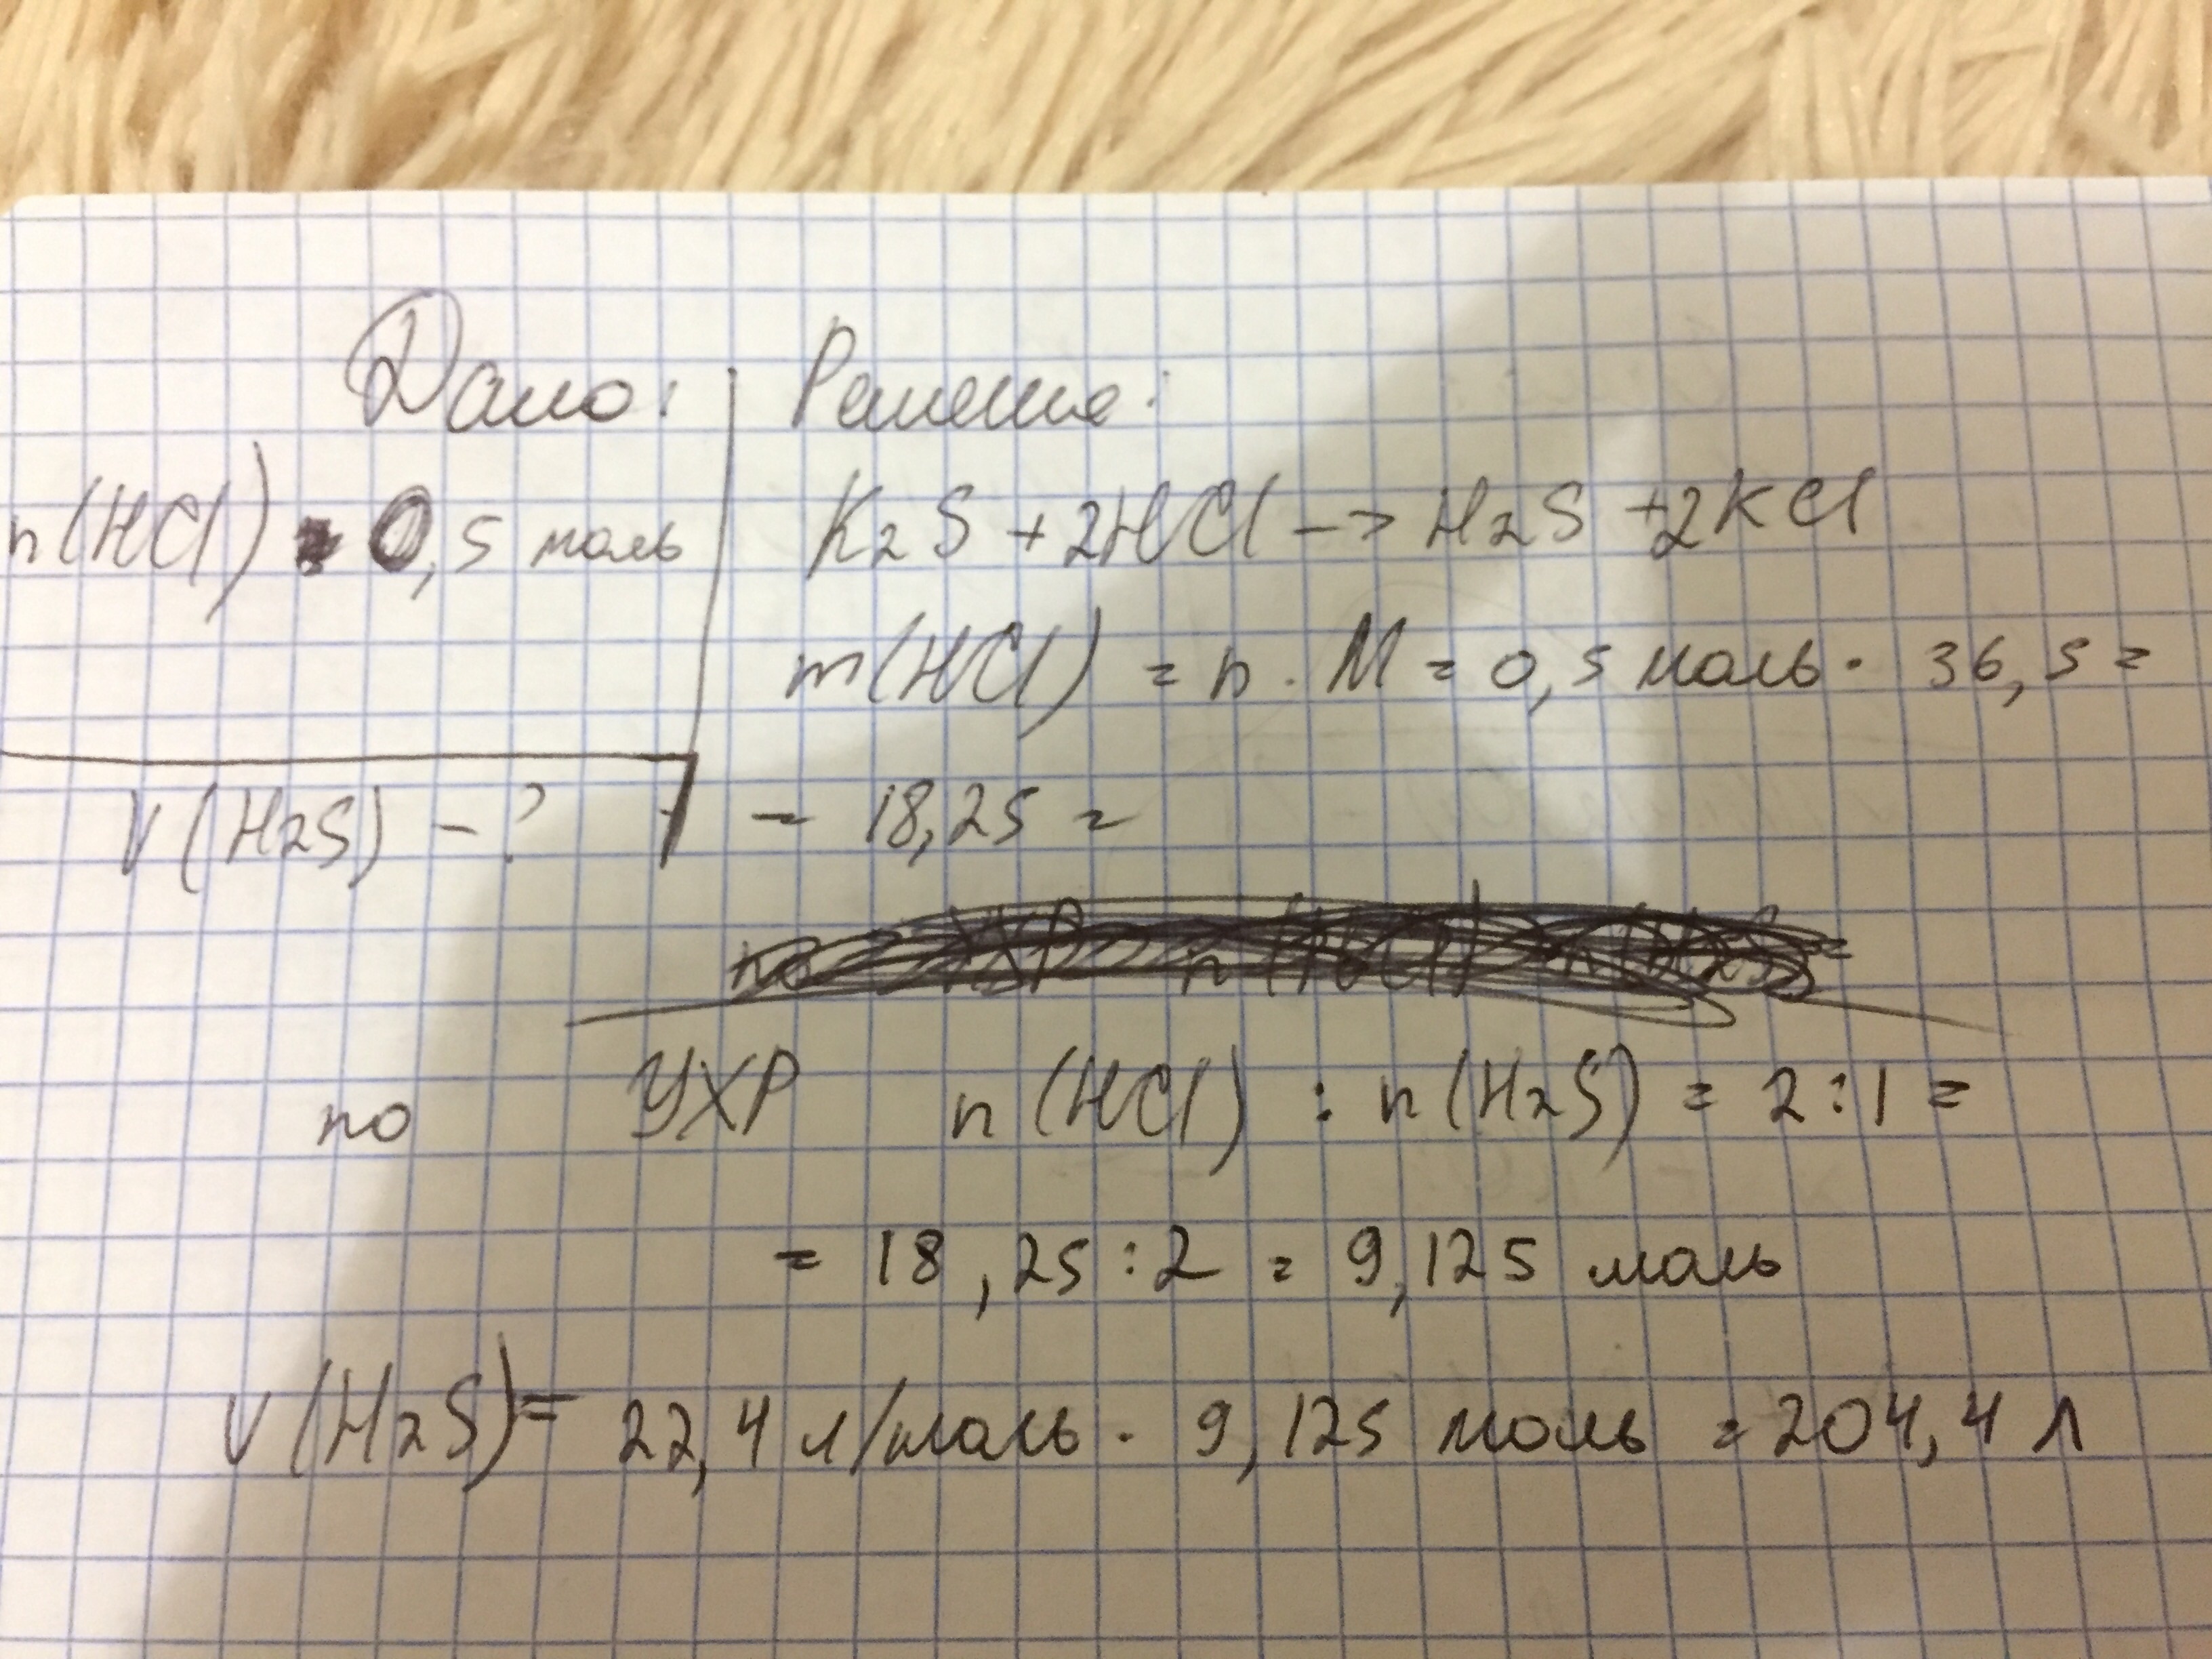 Дано: Решение:
n(HCl) = 0,5 моль K2S + 2HCl -> H2S + 2KCl
m(HCl) = n · M = 0,5 моль · 36,5 =
V(H2S) - ? = 18,25 =
по УХР n(HCl) : n(H2S) = 2 : 1 =
= 18,25 : 2 = 9,125 моль
V(H2S) = 22,4 л/моль · 9,125 моль = 204,4 л